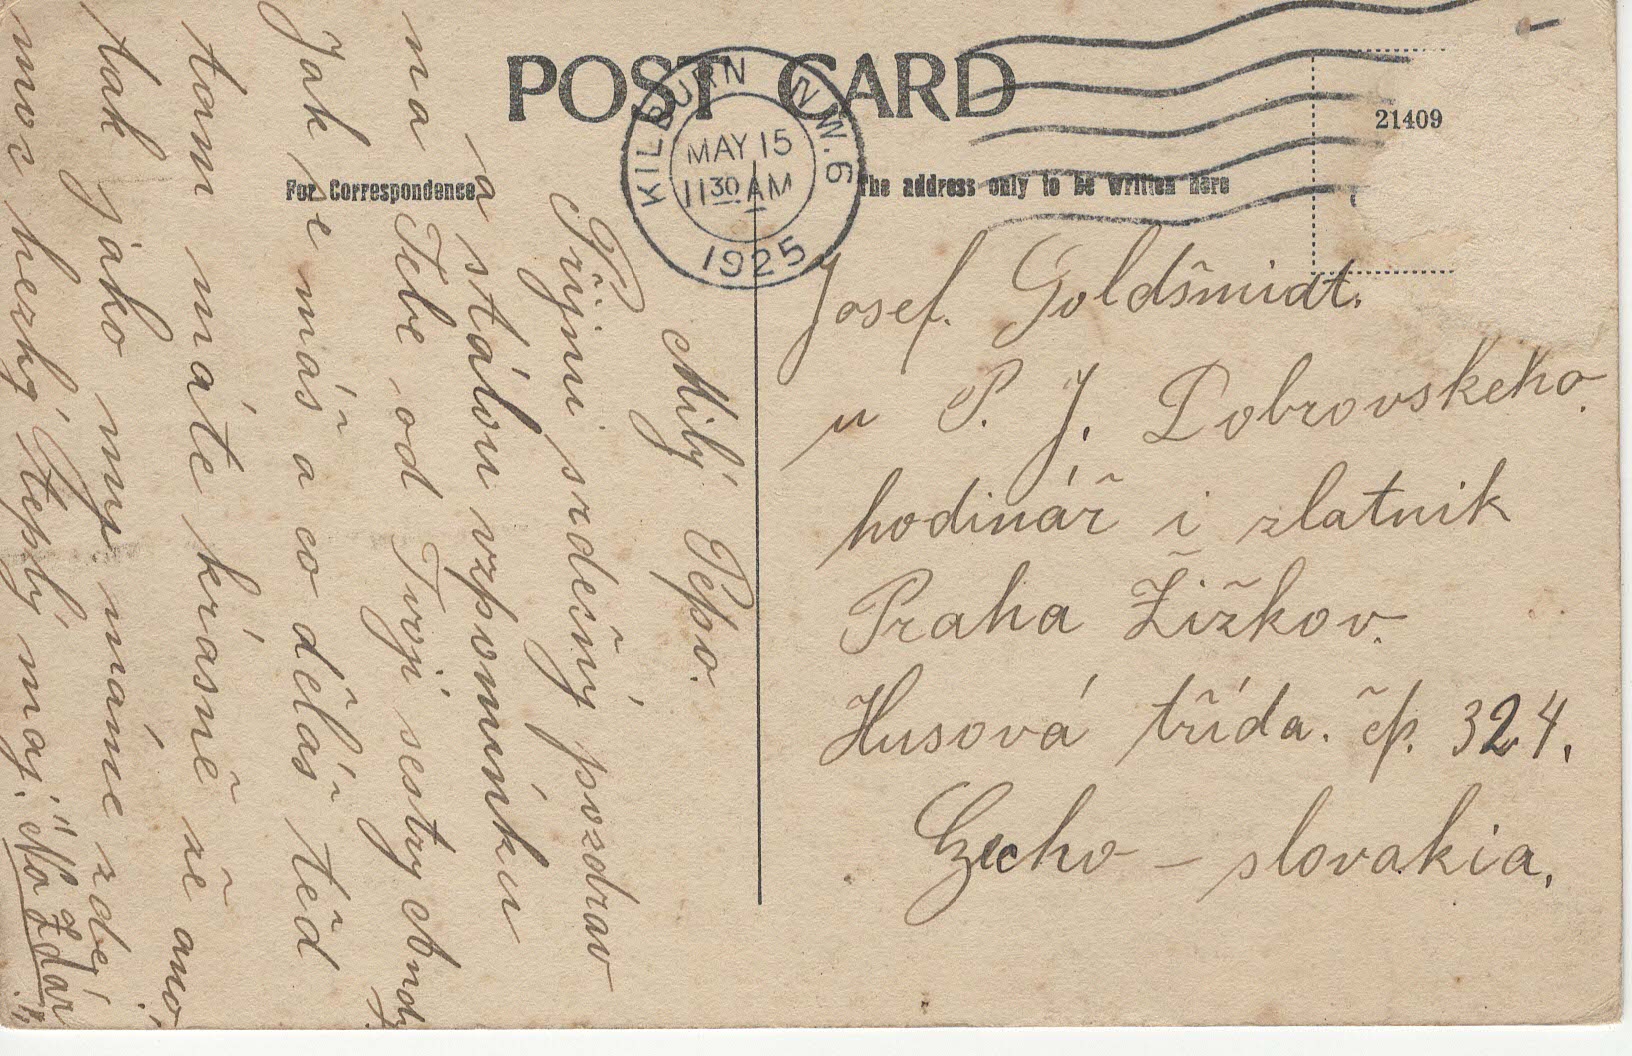 POST CARD
KILBURN N.W.6
MAY 15
11 30 AM
1925
21409
For Correspondence
The address only to be written here
Milý Pepo.
Přijmi srdečný pozdrav
a stálou vzpomínku
na Tebe od Tvoji sestry Andy.
Jak se máš a co děláš teď
tam máte krásně že ano,
tak jako my máme zde,
moc hezký teplý maj. "Na Zdar"
Josef. Goldšmidt.
u P. J. Dobrovskeho.
hodinář i zlatnik
Praha Žižkov.
Husová třída. čp. 324.
Czecho - slovakia.